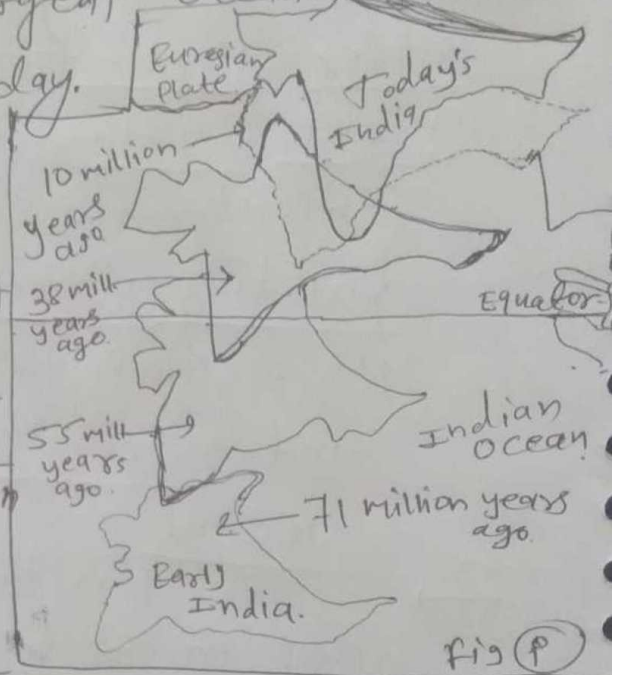 day.
Euresian
Plate
Today's
India
10 million
years
ago
38 mill
years
ago.
Equator
55 mill
years
ago.
Indian
Ocean
71 million years
ago.
Early
India.
Fig P